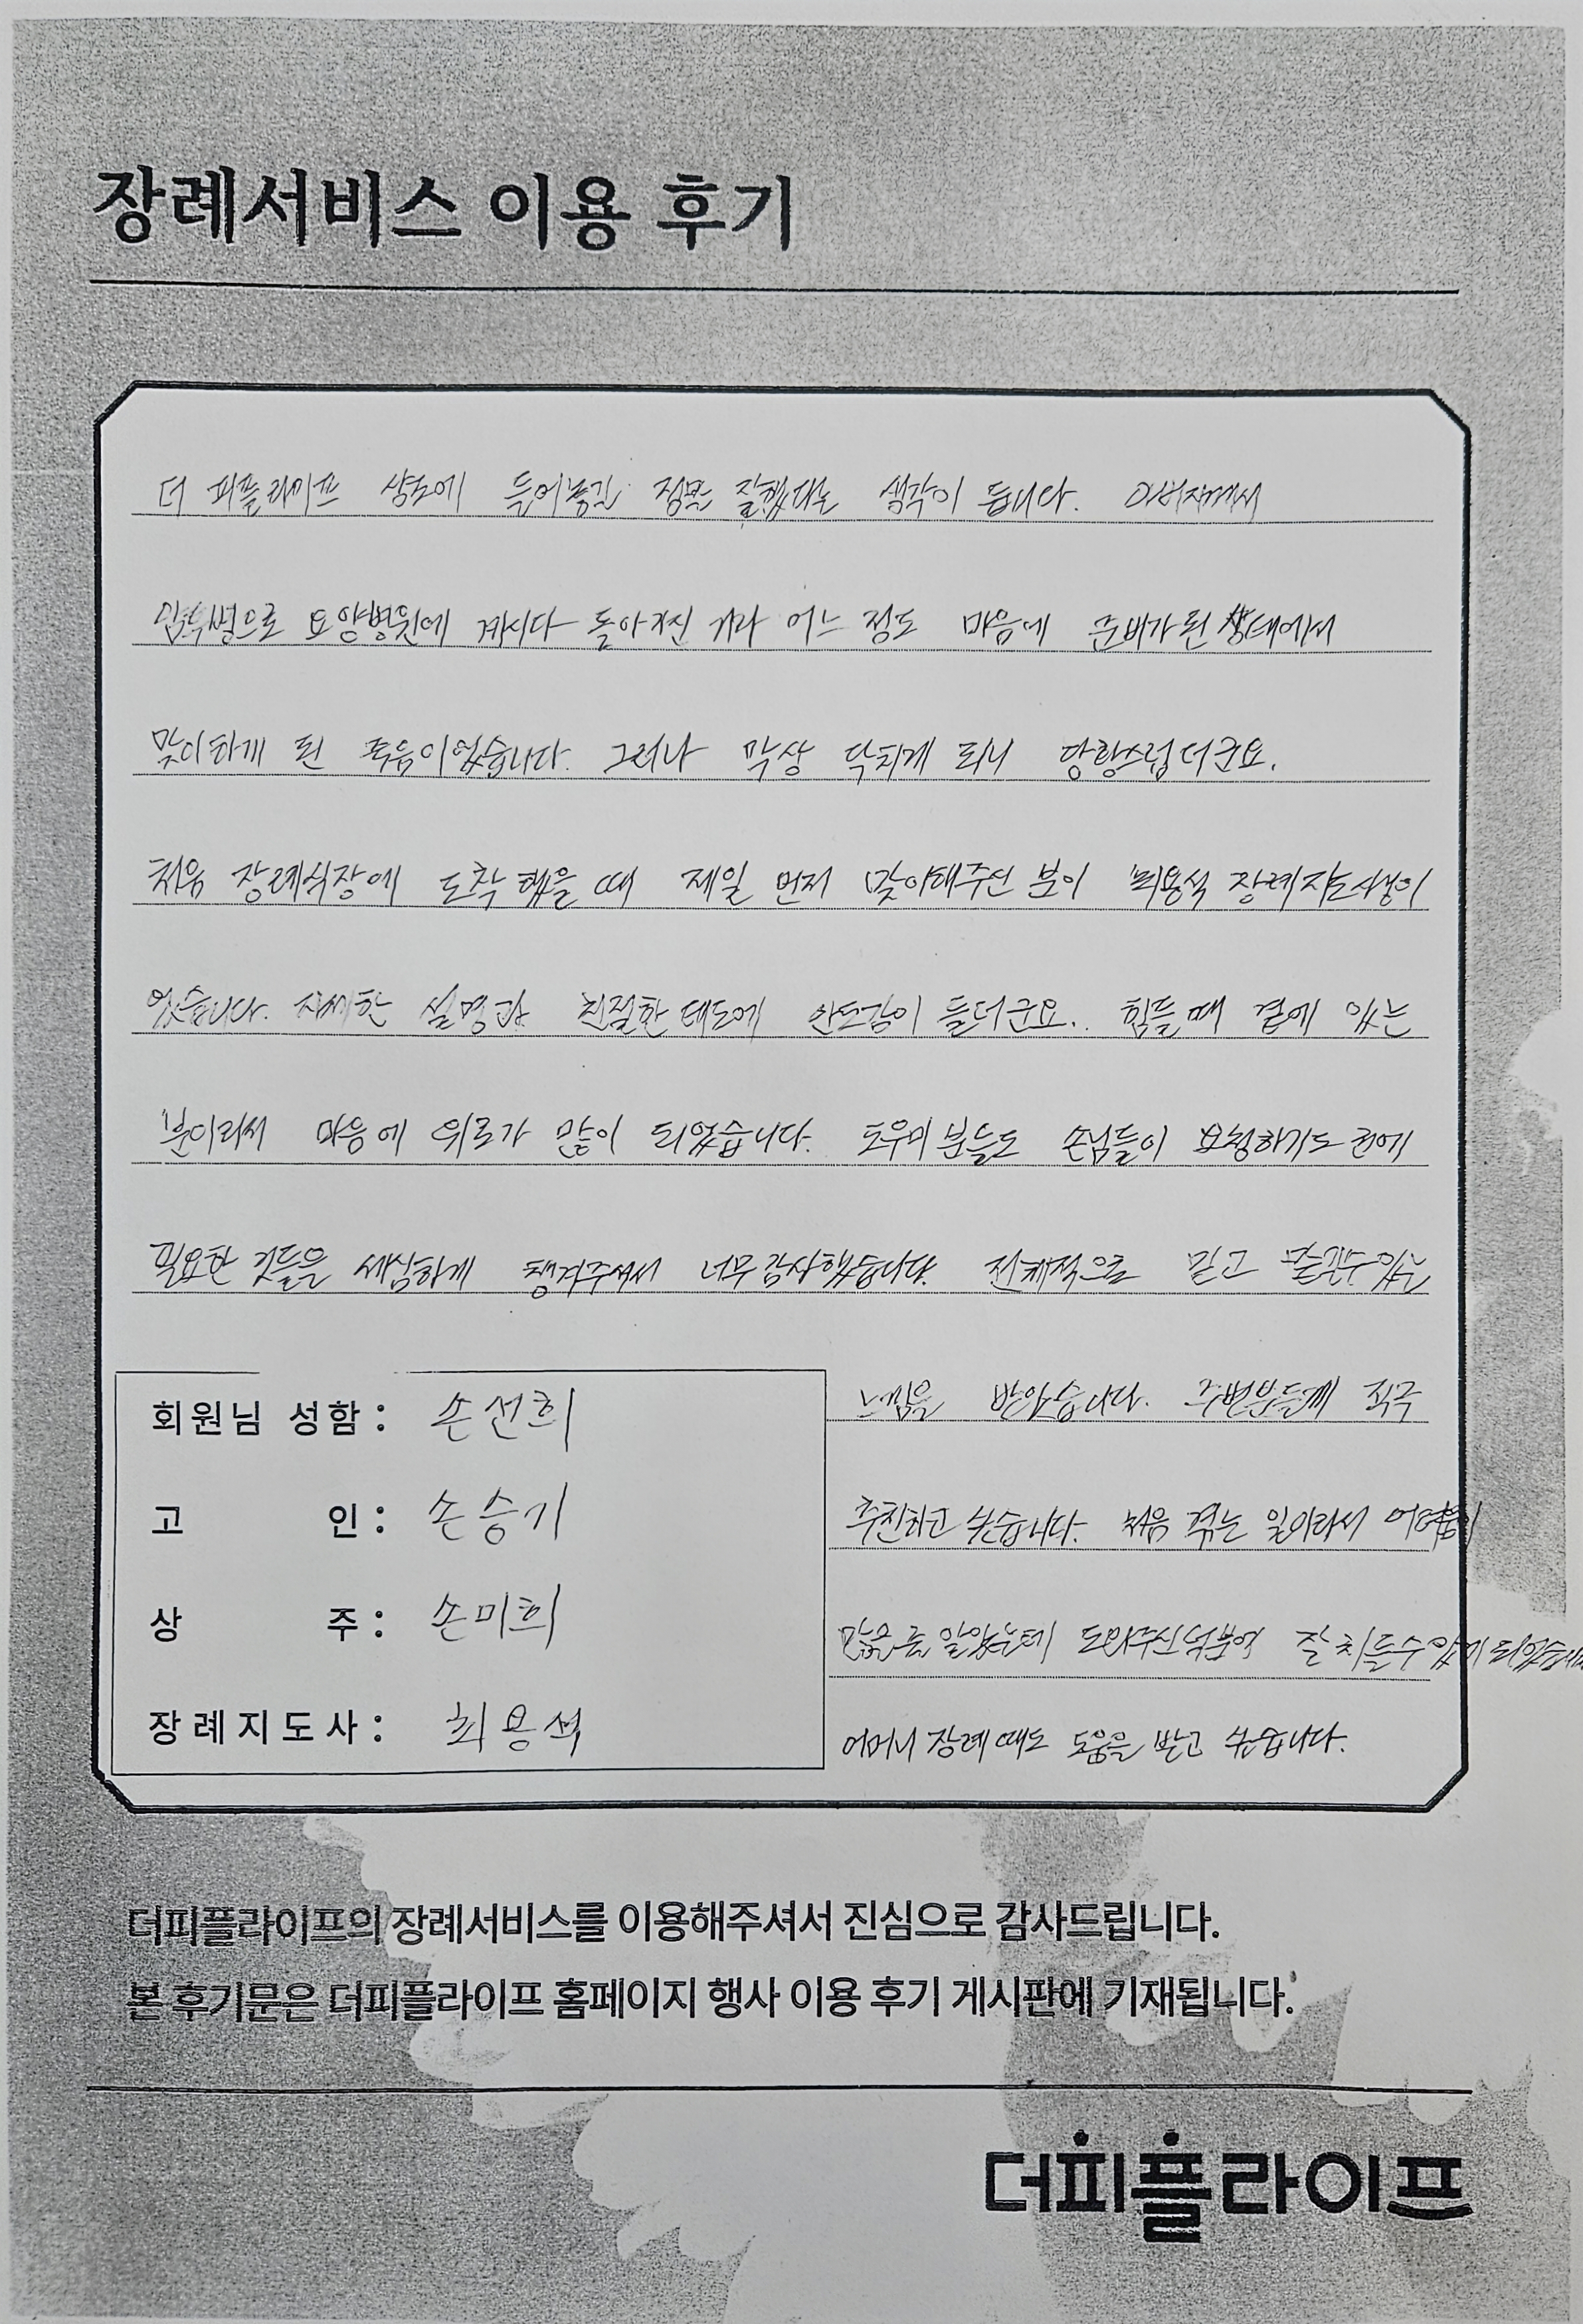 장례서비스 이용 후기
더 피플라이프 상조에 들어놓길 정말 잘했다는 생각이 듭니다. 아버지께서
요양병원에 계시다 돌아가신 거라 어느 정도 마음에 준비가 된 상태에서
맞이하게 된 죽음이었습니다. 그러나 막상 닥치게 되니 당황스럽더군요.
처음 장례식장에 도착했을 때 제일 먼저 맞이해주신 분이 최용석 장례지도사님이
었습니다. 자세한 설명과 친절한 태도에 안도감이 들더군요.. 힘들 때 곁에 있는
분이라서 마음에 위로가 많이 되었습니다. 도우미 분들도 손님들이 요청하기도 전에
필요한 것들을 세심하게 챙겨주셔서 너무 감사했습니다. 전체적으로 믿고 맡길 수 있는
느낌을 받았습니다. 주변분들께 적극
추천하고 싶습니다. 처음 겪는 일이라서 어려움이
많은 줄 알았는데 도와주신 덕분에 잘 치를 수 있게 되었습니다
어머니 장례 때도 도움을 받고 싶습니다.
회원님 성함 : 손선희
고 인 : 손승기
상 주 : 손미희
장례지도사 : 최용석
더피플라이프의 장례서비스를 이용해주셔서 진심으로 감사드립니다.
본 후기문은 더피플라이프 홈페이지 행사 이용 후기 게시판에 기재됩니다.
더피플라이프